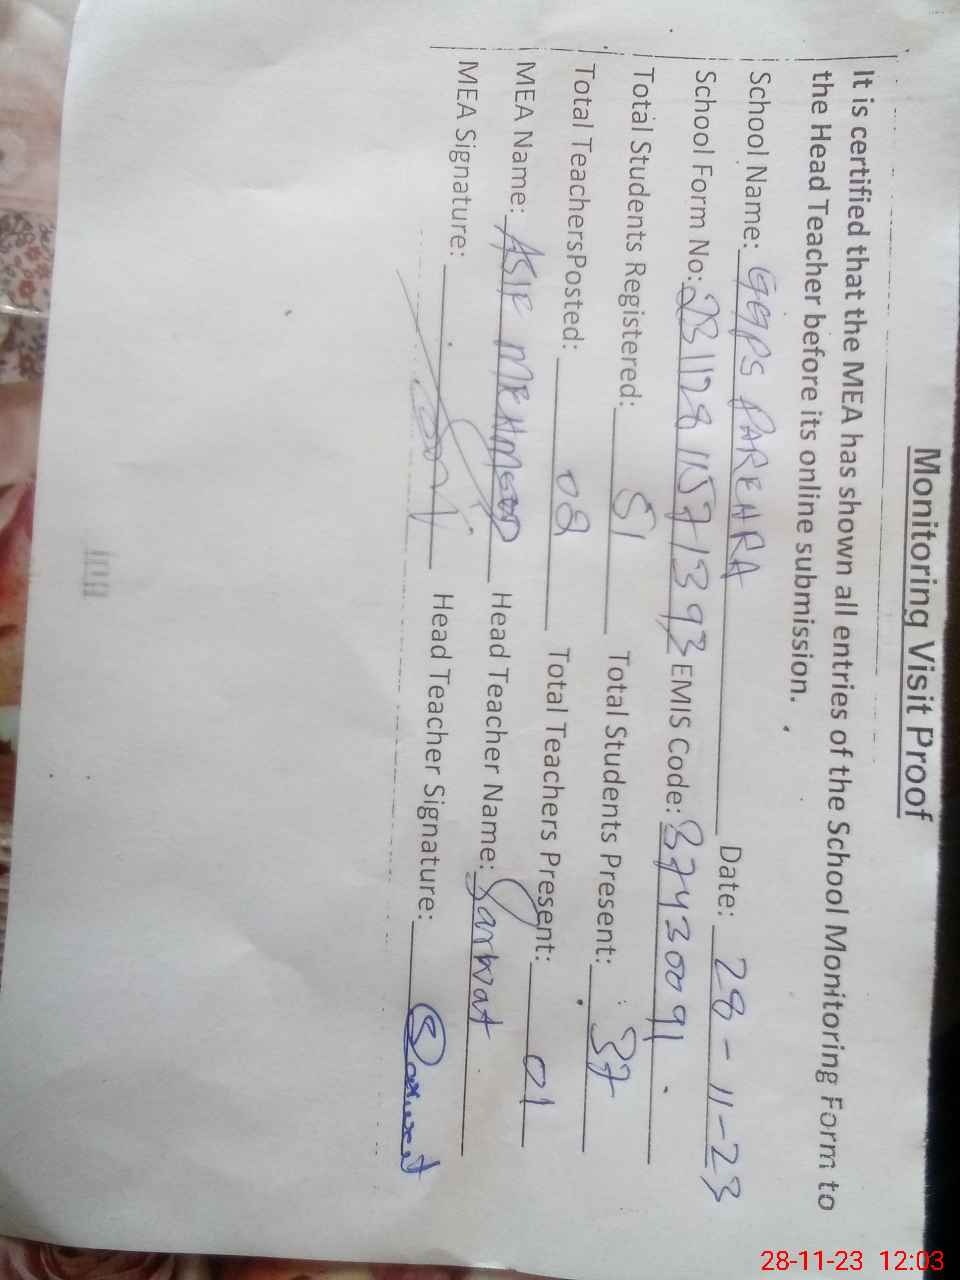 Monitoring Visit Proof
It is certified that the MEA has shown all entries of the School Monitoring Form to
the Head Teacher before its online submission.
School Name: GGPS PAREHRA Date: 28-11-23
School Form No: 231128 1157 1393 EMIS Code: 37430091
Total Students Registered: 51 Total Students Present: 37
Total TeachersPosted: 02 Total Teachers Present: 01
MEA Name: ASIF MEHMOOD Head Teacher Name: Sarwat
MEA Signature: Head Teacher Signature: Sarwat
28-11-23 12:03